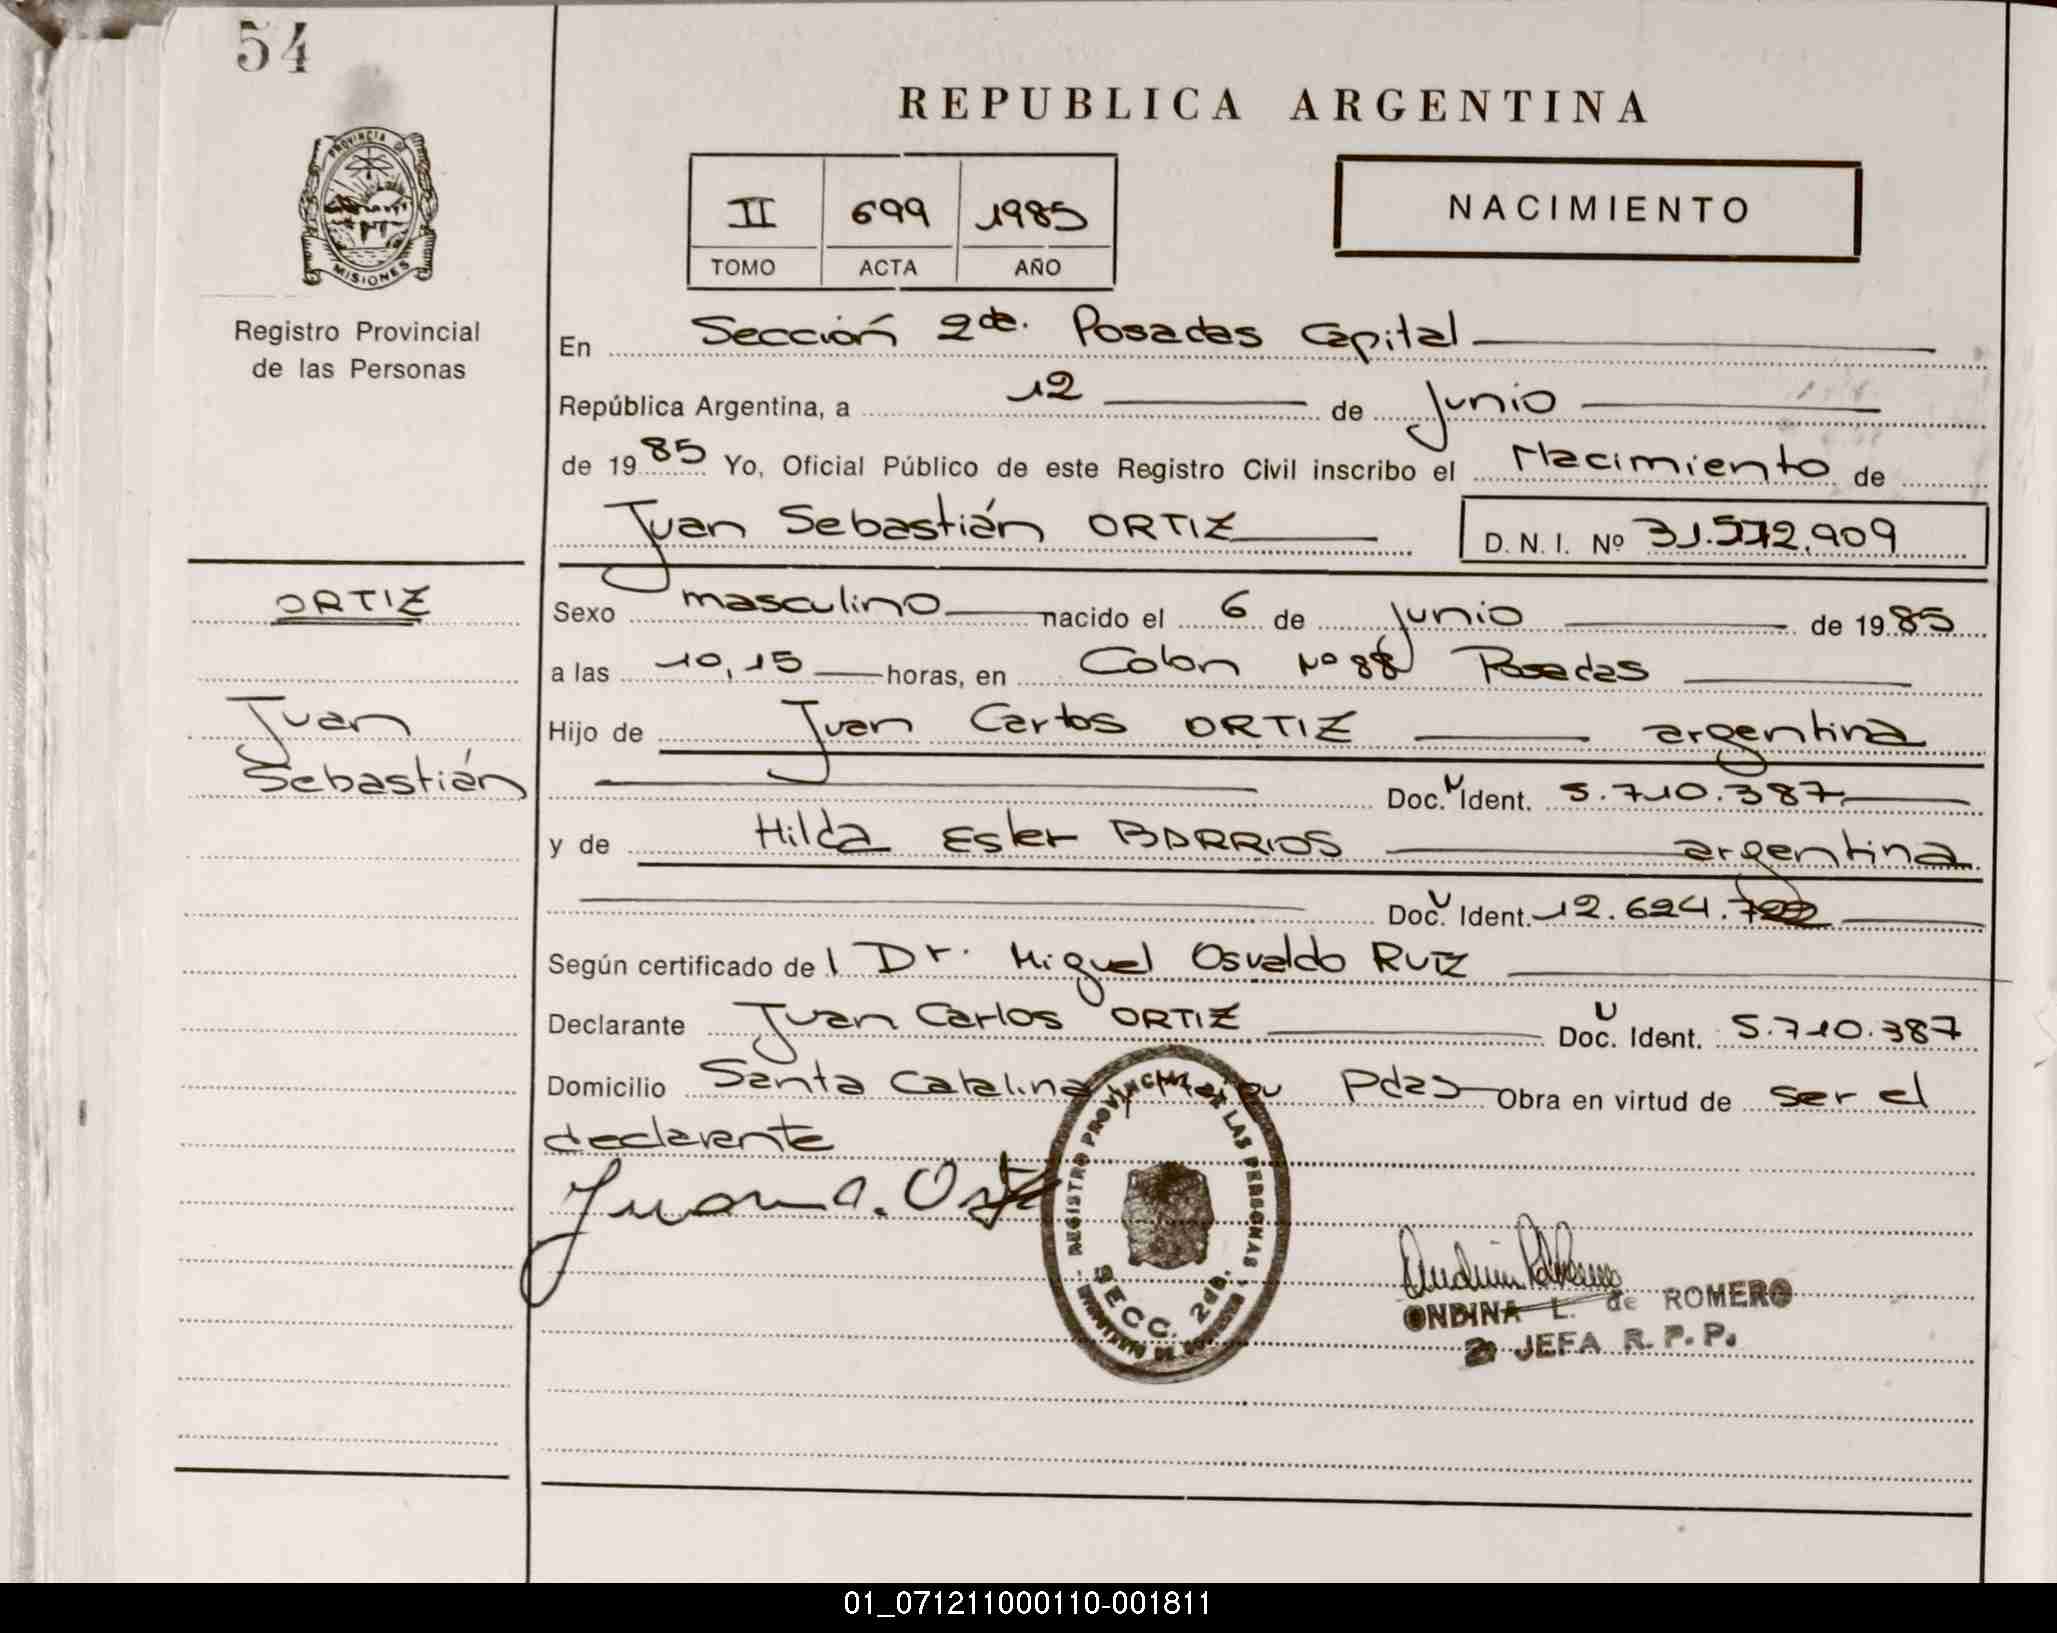 54
REPUBLICA ARGENTINA
PROVINCIA DE
MISIONES
II 699 1985
TOMO ACTA AÑO
NACIMIENTO
Registro Provincial
de las Personas
En Sección 2da. Posadas Capital
República Argentina, a 12 de Junio
de 1985 Yo, Oficial Público de este Registro Civil inscribo el Nacimiento de
Juan Sebastián ORTIZ D. N. I. Nº 31.572.909
ORTIZ
Juan
Sebastián
Sexo masculino nacido el 6 de Junio de 1985
a las 10,15 horas, en Colon Nº 88 Posadas
Hijo de Juan Carlos ORTIZ argentina
Doc. U Ident. 5.710.387
y de Hilda Ester BARRIOS argentina
Doc. U Ident. 12.624.
Según certificado del Dr. Miguel Osvaldo RUIZ
Declarante Juan Carlos ORTIZ Doc. U Ident. 5.710.387
Domicilio Santa Catalina y Maipu Pdas Obra en virtud de ser el
declarante
Juan C. Ortiz
REGISTRO PROVINCIAL DE LAS PERSONAS
SECC. 2da.
ONDINA L. de ROMERO
JEFA R. P. P.
01_071211000110-001811